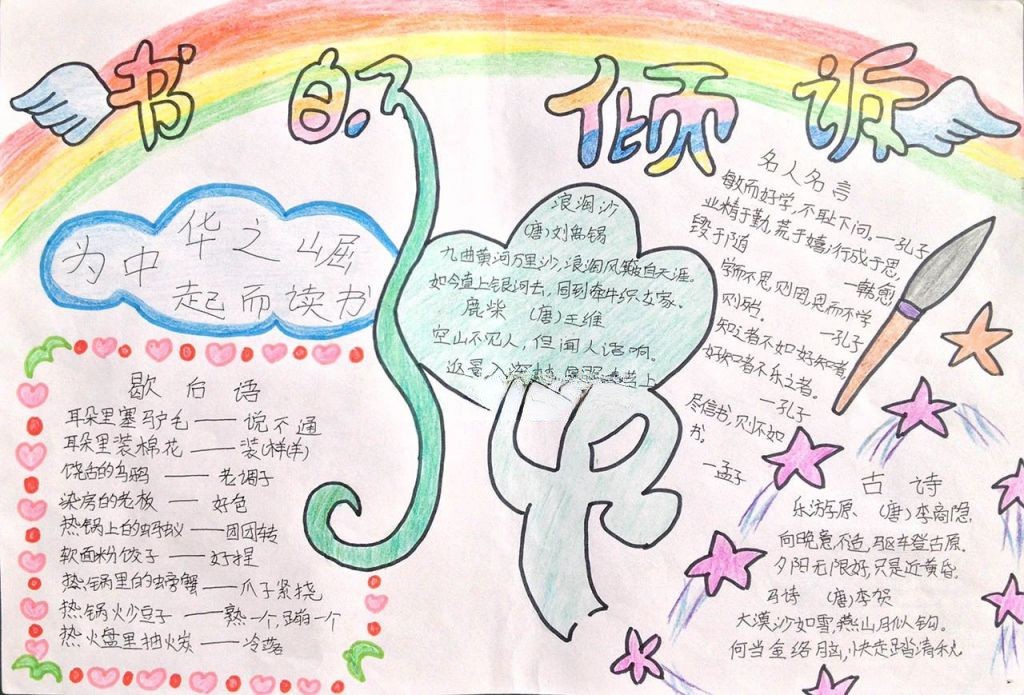 书的倾诉
为中华之崛
起而读书
歇后语
耳朵里塞驴毛——说不通
耳朵里装棉花——装样(羊)
饶舌的乌鸦——老调子
染房的老板——好包
热锅上的蚂蚁——团团转
软面粉饺子——好捏
热锅里的螃蟹——爪子紧挠
热锅火炒豆子——熟一个,蹦一个
热火盘里抽火炭——冷落
浪淘沙
(唐)刘禹锡
九曲黄河万里沙,浪淘风簸自天涯。
如今直上银河去,同到牵牛织女家。
鹿柴 (唐)王维
空山不见人,但闻人语响。
返景入深林
名人名言
敏而好学,不耻下问。—孔子
业精于勤,荒于嬉,行成于思,
毁于随 —韩愈
学而不思则罔,思而不学
则殆。 —孔子
知之者不如好知者
好知者不乐之者。
—孔子
尽信书,则不如
书。
—孟子
古诗
乐游原、(唐)李商隐
向晚意不适,驱车登古原。
夕阳无限好,只是近黄昏。
马诗 (唐)李贺
大漠沙如雪,燕山月似钩。
何当金络脑,快走踏清秋